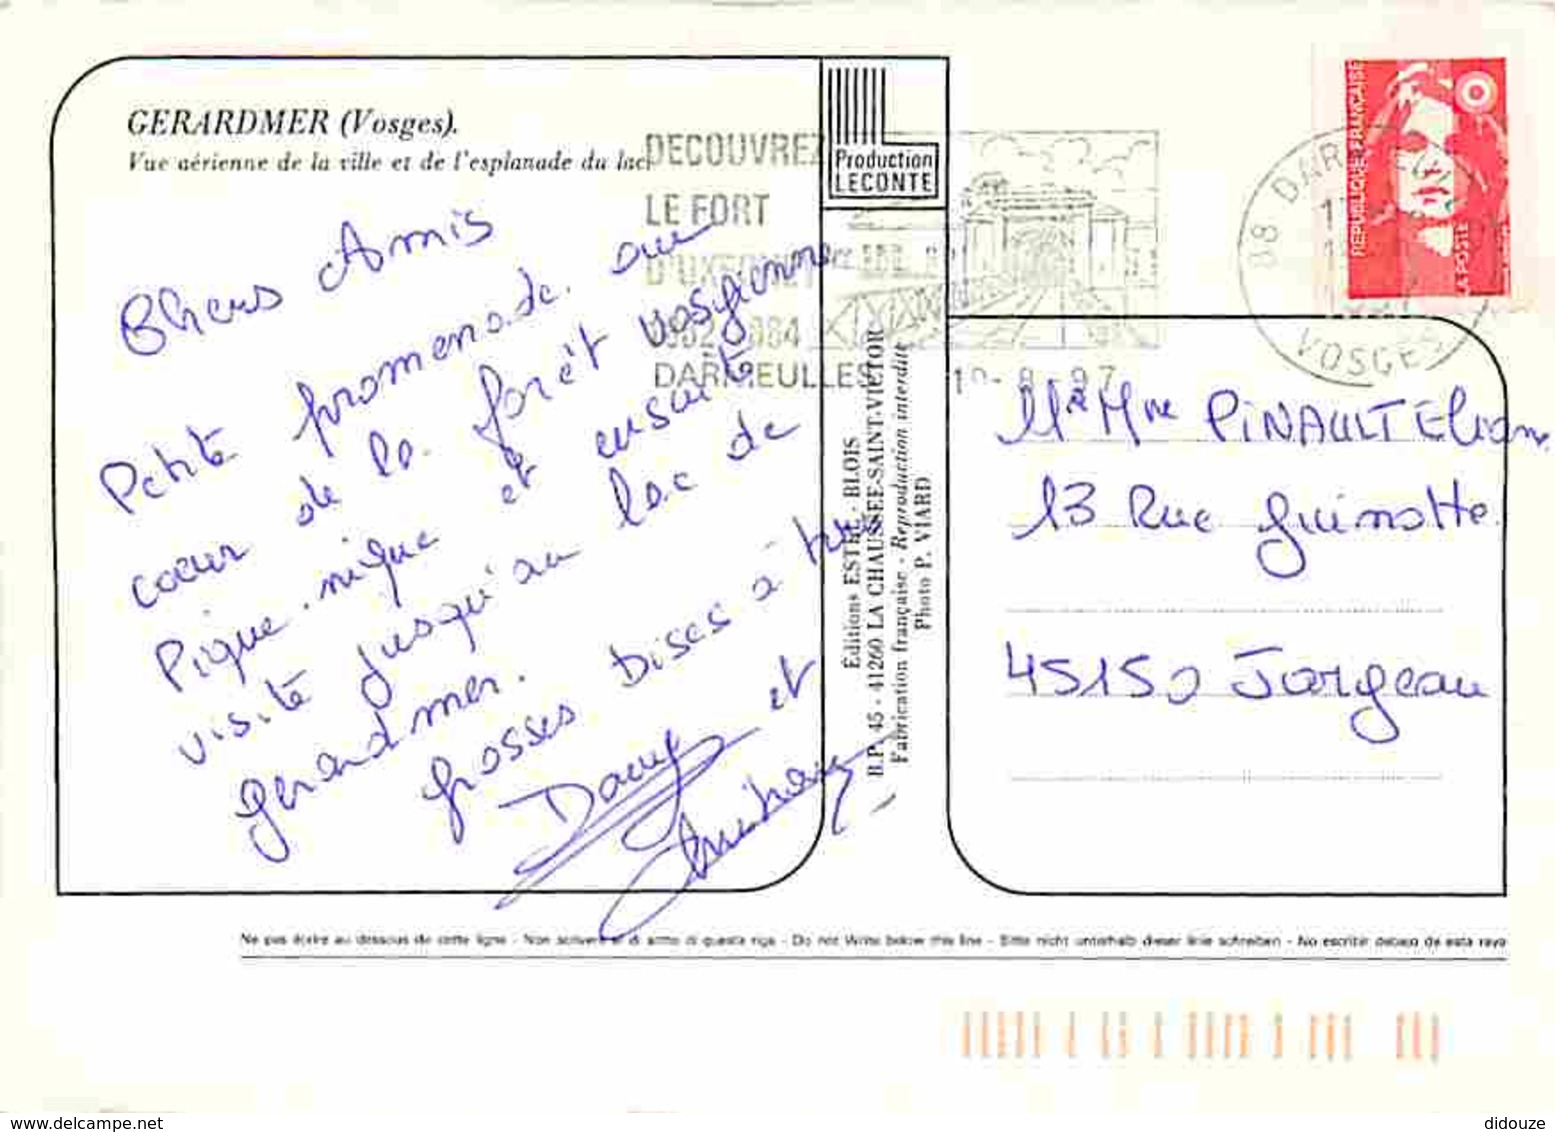 GERARDMER (Vosges).
Vue aérienne de la ville et de l'esplanade du lac.
Production
LECONTE
DECOUVREZ
LE FORT
D'UXEGNEY
DARNIEULLES
88 DARNIEULLES
VOSGES
REPUBLIQUE FRANÇAISE
LA POSTE
Chers Amis
Petite promenade au
coeur de la forêt vosgienne
Pique-nique et ensuite
visite jusqu'au lac de
Gerardmer.
Grosses Bises à tous
Dany et
Editions ESTEL - BLOIS
B.P. 45 - 41260 LA CHAUSSEE-SAINT-VICTOR
Fabrication française - Reproduction interdite
Photo P. VIARD
Mr Mme PINAULT Eliane
13 Rue Guinotte
45150 Jargeau
Ne pas écrire au dessous de cette ligne - Non scrivere al di sotto di questa riga - Do not Write below this line - Bitte nicht unterhalb dieser linie schreiben - No escribir debajo de esta raya
didouze